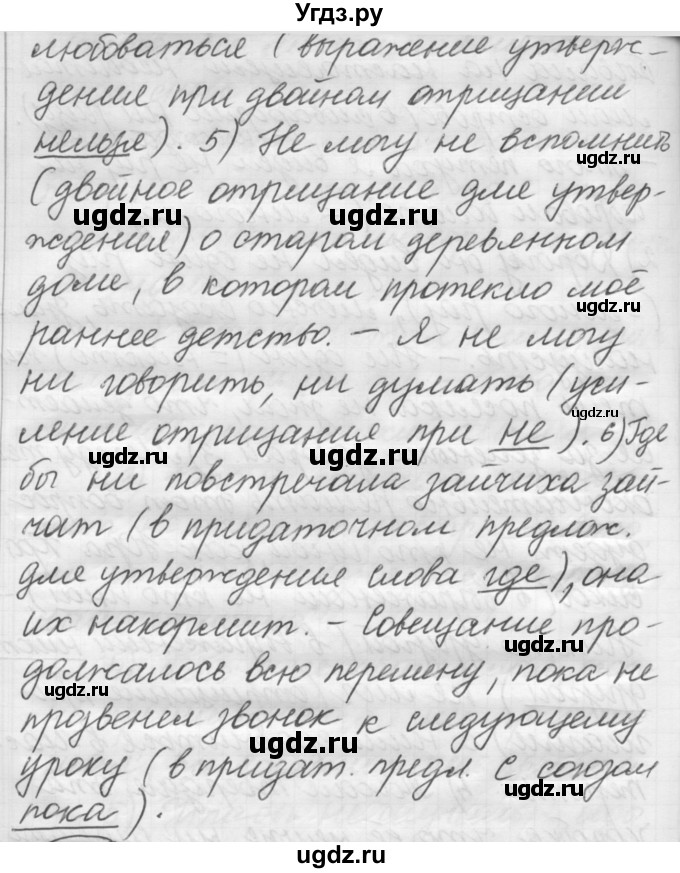 Угдз.ру
любоваться (выражение утверж-
дения при двойном отрицании
нельзя). 5) Не могу не вспомнить
(двойное отрицание для утвер-
ждения) о старом деревянном
доме, в котором протекло моё
раннее детство. – Я не могу
ни говорить, ни думать (уси-
ление отрицания при не). 6) Где
бы ни повстречала зайчиха зай-
чат (в придаточном предлож.
для утверждения слова где), она
их накормит. – Совещание про-
должалось всю перемену, пока не
прозвенел звонок к следующему
уроку (в придат. предл. с союзом
пока).
ugdz.ru
ugdz.ru
ugdz.ru
ugdz.ru
ugdz.ru
ugdz.ru
ugdz.ru
ugdz.ru
ugdz.ru
ugdz.ru
ugdz.ru
ugdz.ru
ugdz.ru